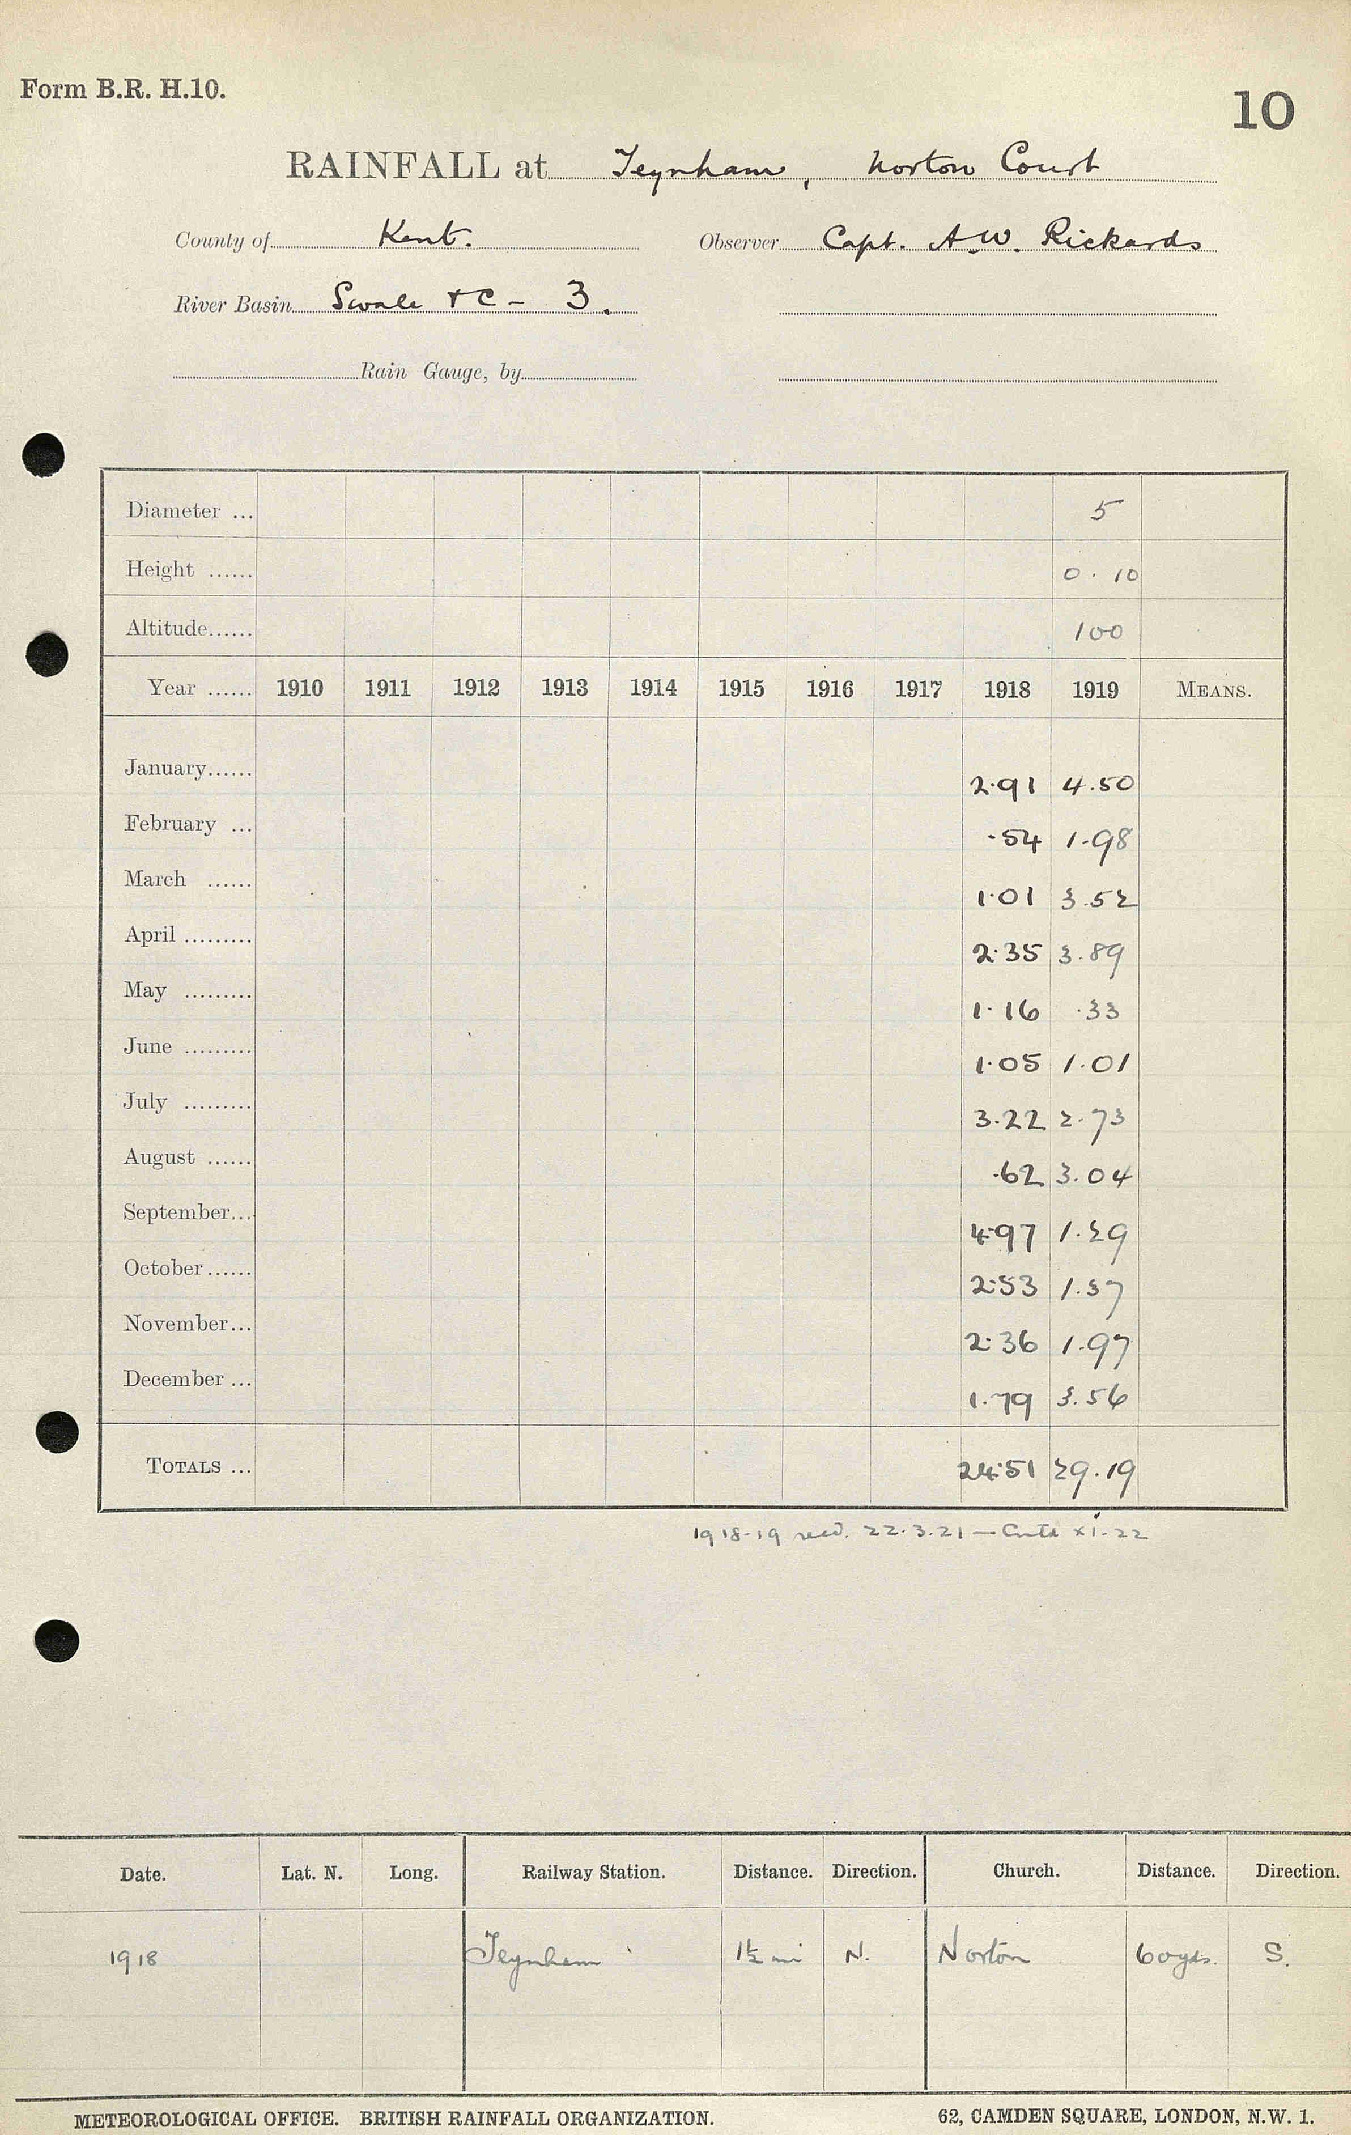 Form B.R. H.10.
10
RAINFALL at Teynham, Norton Court
County of Kent. Observer Capt. A.W. Rickards
River Basin Swale +C - 3.
Rain Gauge, by
Diameter ... 5
Height ...... 0.10
Altitude...... 100
Year ...... 1910 1911 1912 1913 1914 1915 1916 1917 1918 1919 MEANS.
January...... 2.91 4.50
February ... .54 1.98
March ...... 1.01 3.52
April ......... 2.35 3.89
May ......... 1.16 .33
June ......... 1.05 1.01
July ......... 3.22 2.73
August ...... .62 3.04
September... 4.97 1.29
October...... 2.53 1.37
November... 2.36 1.97
December ... 1.79 3.56
TOTALS ... 24.51 29.19
1918-19 recd. 22.3.21 — xi.22
Date. Lat. N. Long. Railway Station. Distance. Direction. Church. Distance. Direction.
1918 Teynham 1½ mi N. Norton 60yds. S.
METEOROLOGICAL OFFICE. BRITISH RAINFALL ORGANIZATION. 62, CAMDEN SQUARE, LONDON, N.W. 1.